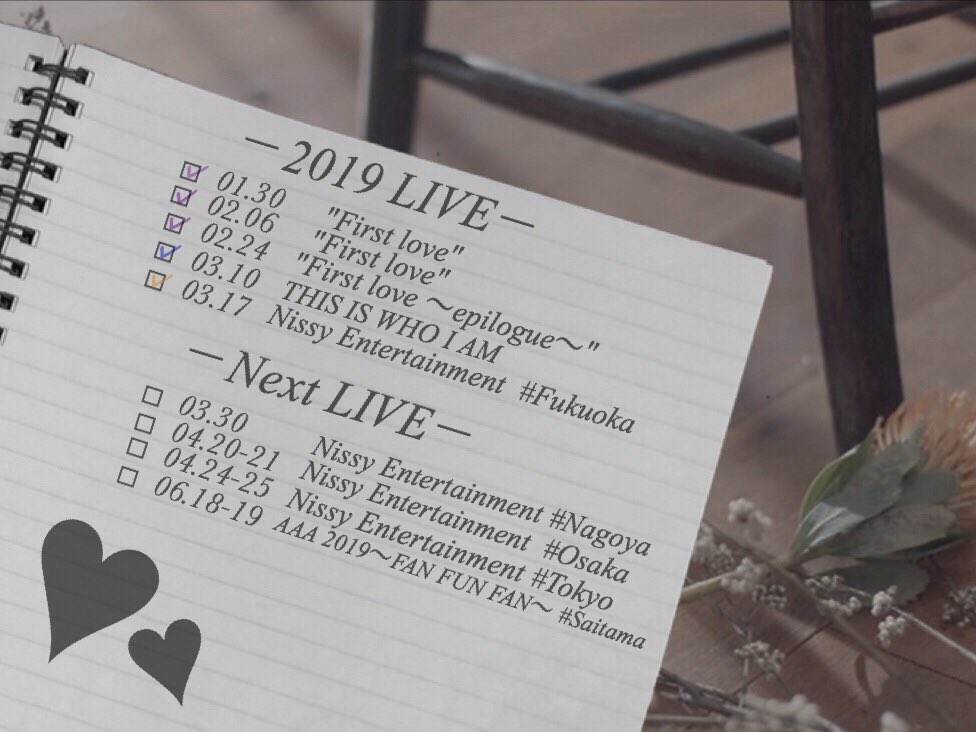 —2019 LIVE—
☑ 01.30 "First love"
☑ 02.06 "First love"
☑ 02.24 "First love ～epilogue～"
☑ 03.10 THIS IS WHO I AM
☑ 03.17 Nissy Entertainment #Fukuoka
—Next LIVE—
☐ 03.30 Nissy Entertainment #Nagoya
☐ 04.20-21 Nissy Entertainment #Osaka
☐ 04.24-25 Nissy Entertainment #Tokyo
☐ 06.18-19 AAA 2019～FAN FUN FAN～ #Saitama